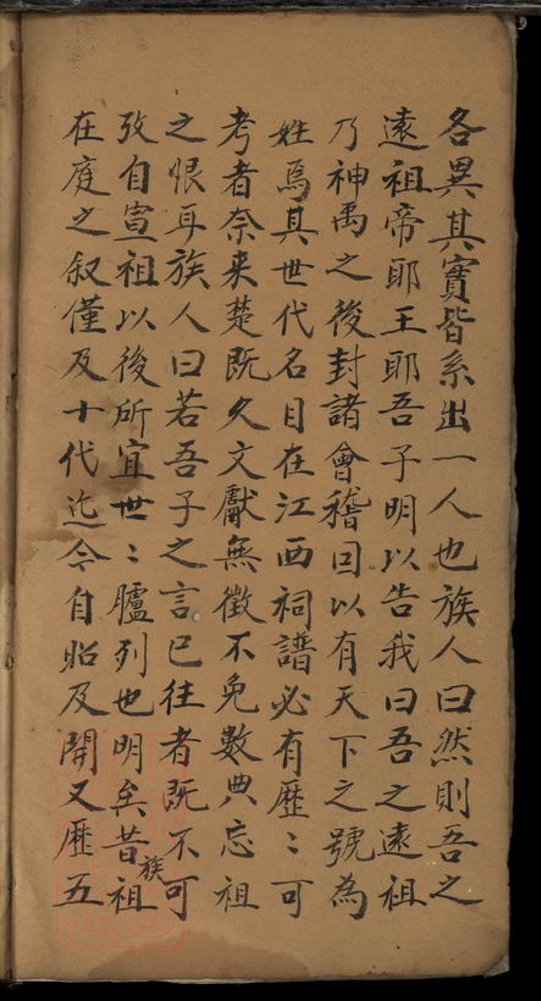 各異其實皆系出一人也族人曰然則吾之
遠祖帝耶王耶吾子明以告我曰吾之遠祖
乃神禹之後封諸會稽囙以有天下之號為
姓焉其世代名目在江西祠譜必有歷〻可
考者奈来楚既久文獻無徵不免數典忘祖
之恨耳族人曰若吾子之言已往者既不可
攷自宣祖以後所宜世〻臚列也明矣昔族祖
在庭之叙僅及十代迄今自昭及開又歷五